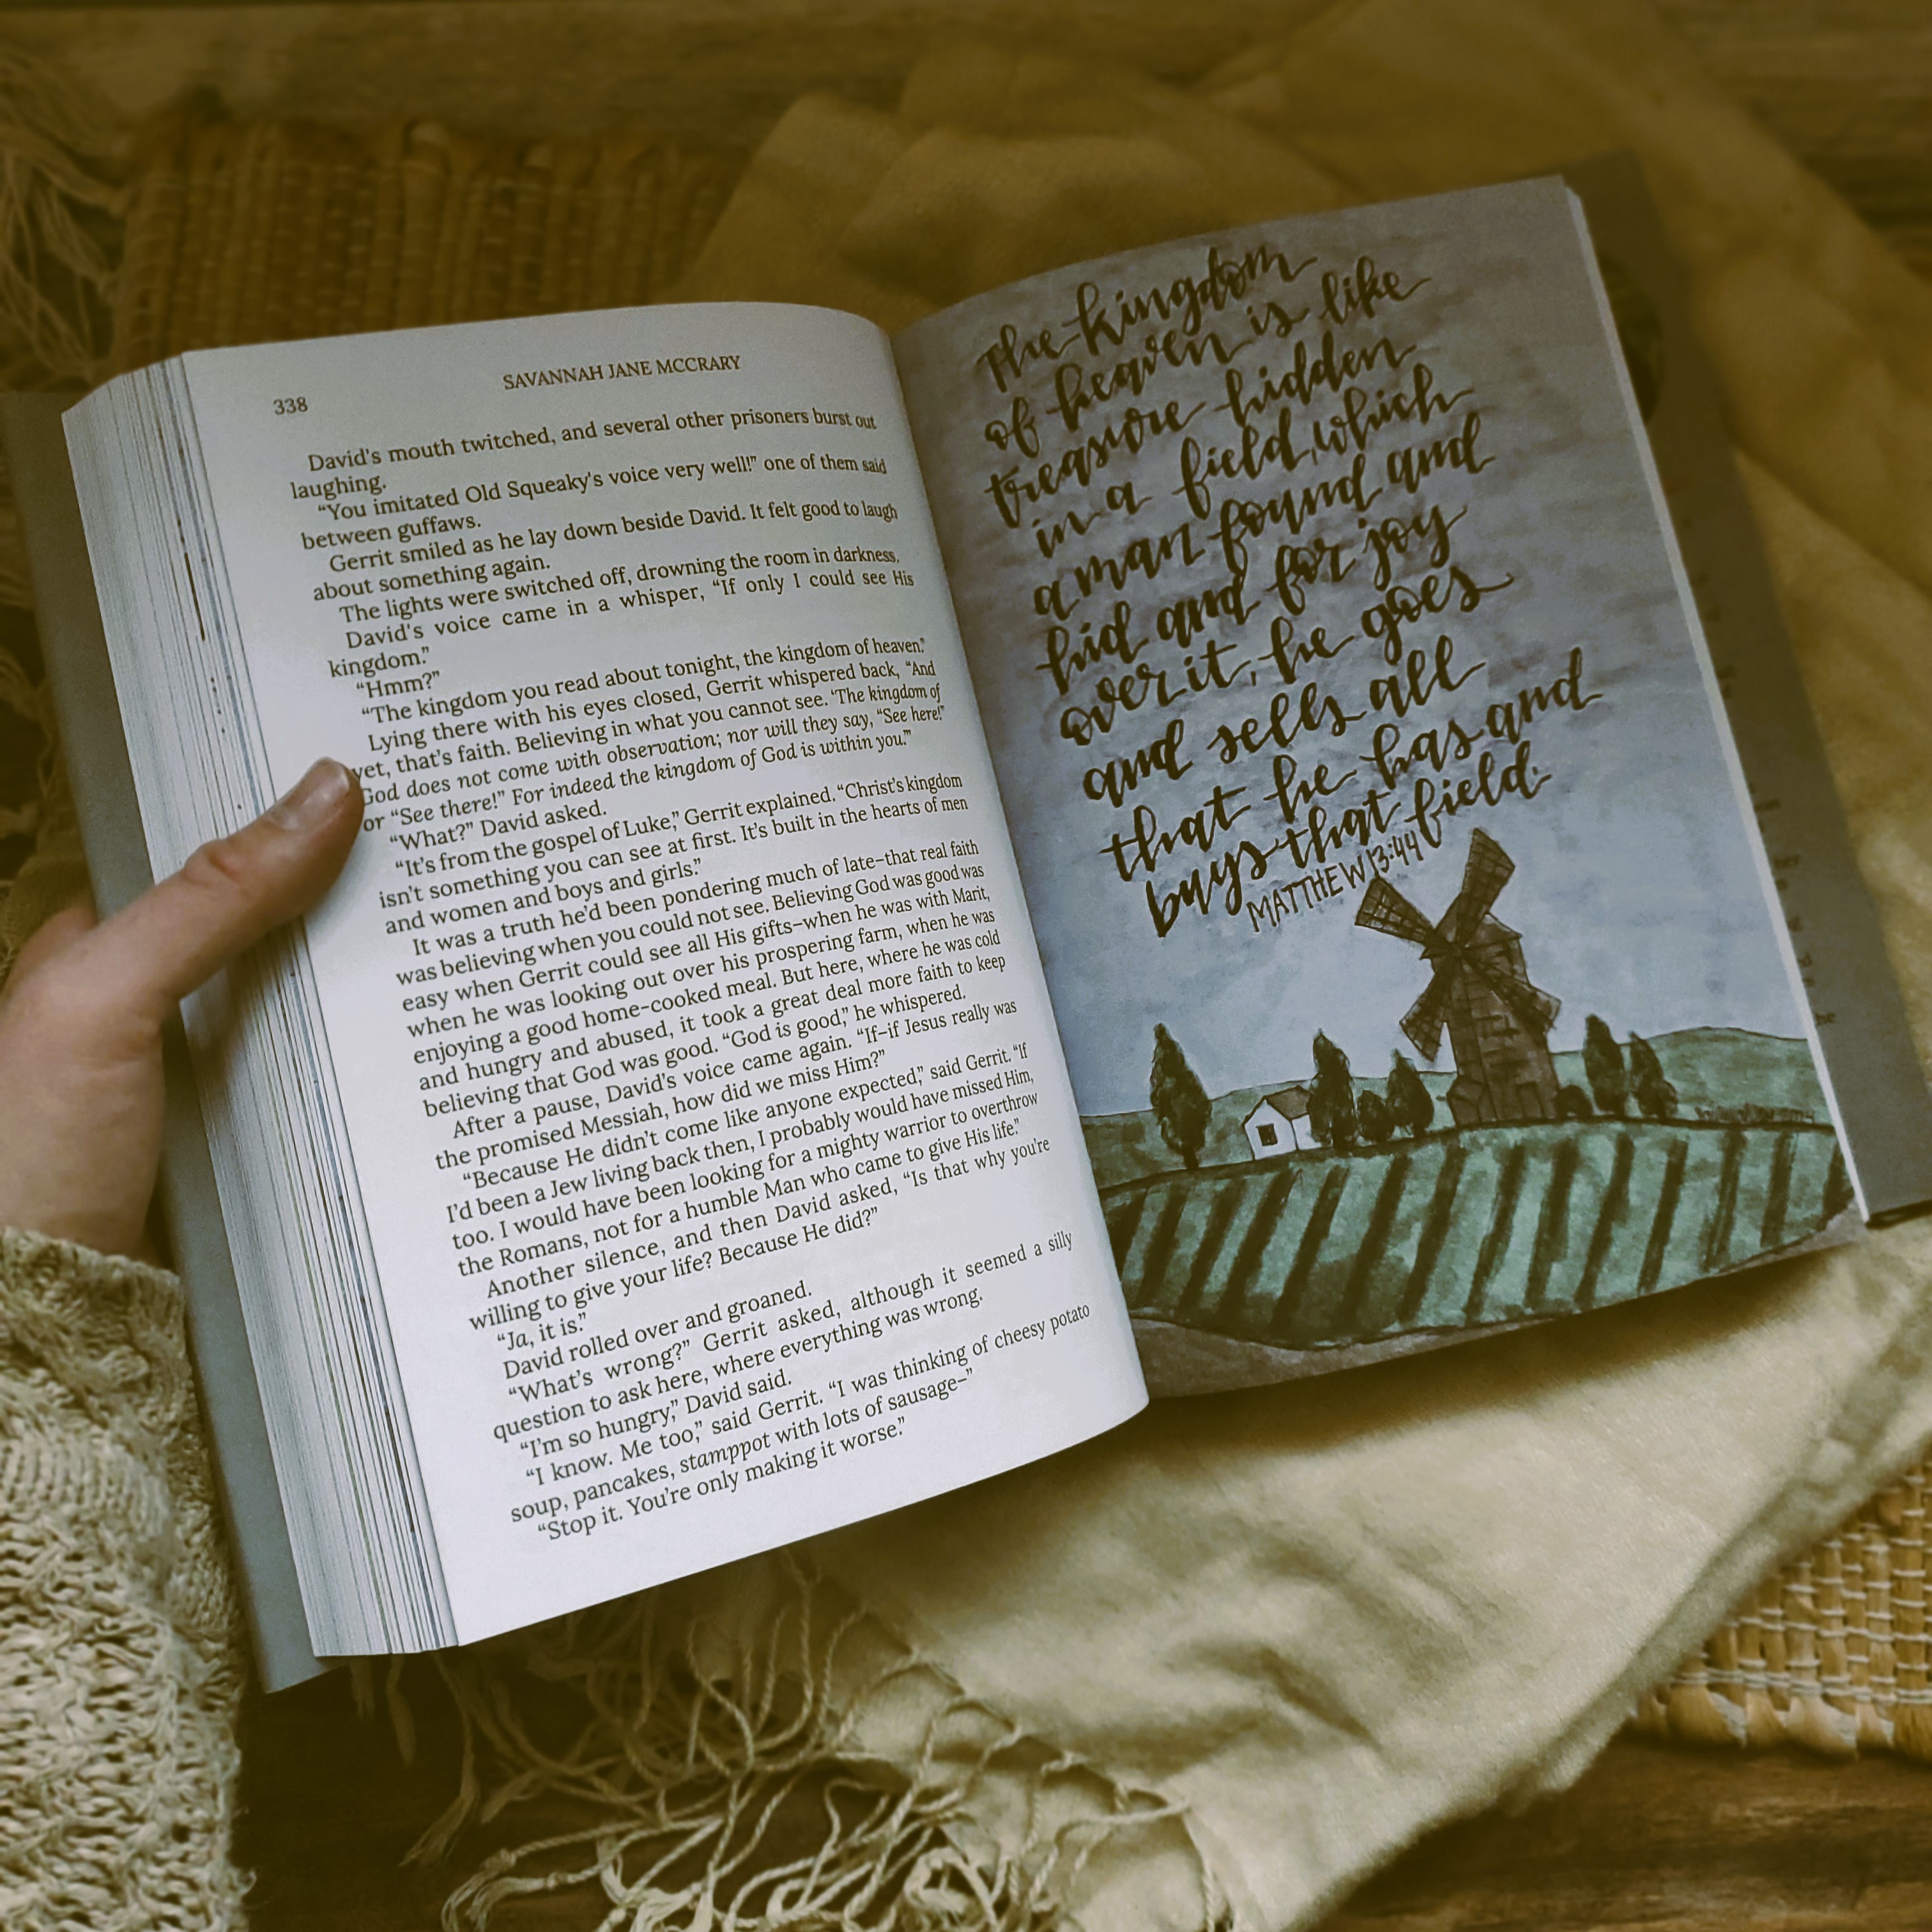 338
SAVANNAH JANE MCCRARY
David's mouth twitched, and several other prisoners burst out
laughing.
“You imitated Old Squeaky's voice very well!” one of them said
between guffaws.
Gerrit smiled as he lay down beside David. It felt good to laugh
about something again.
The lights were switched off, drowning the room in darkness.
David's voice came in a whisper, “If only I could see His
kingdom.”
“Hmm?”
“The kingdom you read about tonight, the kingdom of heaven.”
Lying there with his eyes closed, Gerrit whispered back, “And
yet, that’s faith. Believing in what you cannot see. ‘The kingdom of
God does not come with observation; nor will they say, “See here!”
or “See there!” For indeed the kingdom of God is within you.’”
“What?” David asked.
“It’s from the gospel of Luke,” Gerrit explained. “Christ’s kingdom
isn’t something you can see at first. It’s built in the hearts of men
and women and boys and girls.”
It was a truth he’d been pondering much of late–that real faith
was believing when you could not see. Believing God was good was
easy when Gerrit could see all His gifts–when he was with Marit,
when he was looking out over his prospering farm, when he was
enjoying a good home-cooked meal. But here, where he was cold
and hungry and abused, it took a great deal more faith to keep
believing that God was good. “God is good,” he whispered.
After a pause, David’s voice came again. “If–if Jesus really was
the promised Messiah, how did we miss Him?”
“Because He didn’t come like anyone expected,” said Gerrit. “If
I’d been a Jew living back then, I probably would have missed Him,
too. I would have been looking for a mighty warrior to overthrow
the Romans, not for a humble Man who came to give His life.”
Another silence, and then David asked, “Is that why you’re
willing to give your life? Because He did?”
“Ja, it is.”
David rolled over and groaned.
“What’s wrong?” Gerrit asked, although it seemed a silly
question to ask here, where everything was wrong.
“I’m so hungry,” David said.
“I know. Me too,” said Gerrit. “I was thinking of cheesy potato
soup, pancakes, stamppot with lots of sausage–”
“Stop it. You’re only making it worse.”
The kingdom
of heaven is like
treasure hidden
in a field, which
a man found and
hid and for joy
over it, he goes
and sells all
that he has and
buys that field.
MATTHEW 13:44